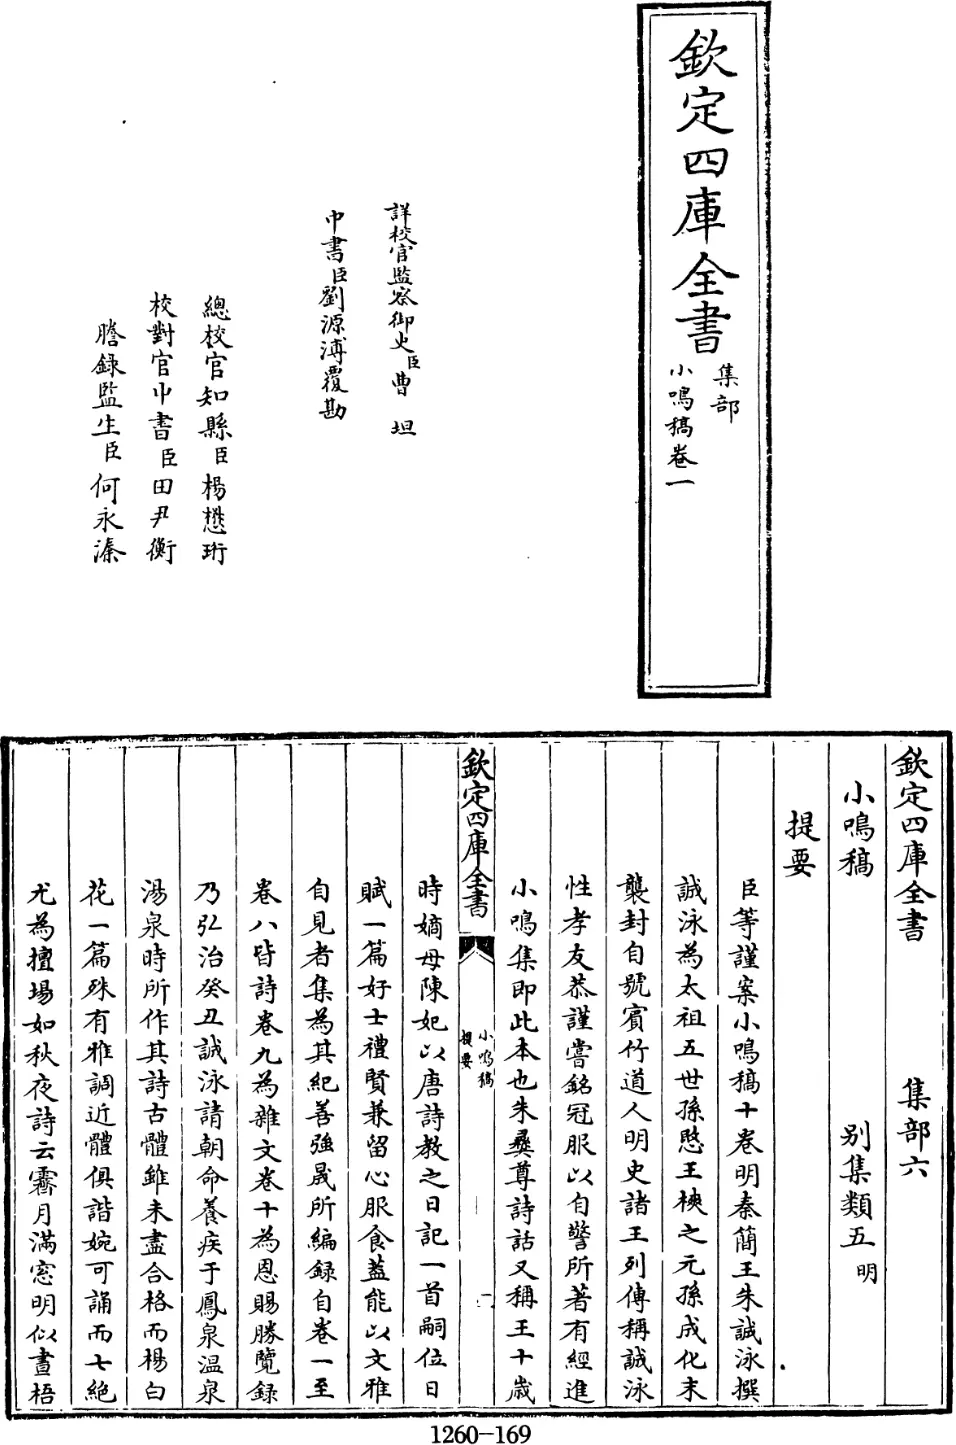 欽定四庫全書
集部
小鳴稿卷一
詳校官監察御史臣曹坦
中書臣劉源溥覆勘
總校官知縣臣楊懋珩
校對官中書臣田尹衡
謄録監生臣何永溱
欽定四庫全書 集部六
小鳴稿 别集類五明
提要
臣等謹案小鳴稿十卷明秦簡王朱誠泳撰
誠泳為太祖五世孫愍王樉之元孫成化末
襲封自號賓竹道人明史諸王列傳稱誠泳
性孝友恭謹嘗銘冠服以自警所著有經進
小鳴集即此本也朱彝尊詩話又稱王十歳
欽定四庫全書
小鳴稿
提要
一
時嫡母陳妃以唐詩教之日記一首嗣位日
賦一篇好士禮賢兼留心服食蓋能以文雅
自見者集為其紀善強晟所編録自卷一至
卷八皆詩卷九為雜文卷十為恩賜勝覽録
乃弘治癸丑誠泳請朝命養疾于鳳泉温泉
湯泉時所作其詩古體雖未盡合格而楊白
花一篇殊有雅調近體俱諧婉可誦而七絶
尤為擅場如秋夜詩云霽月滿窓明似晝梧
1260-169